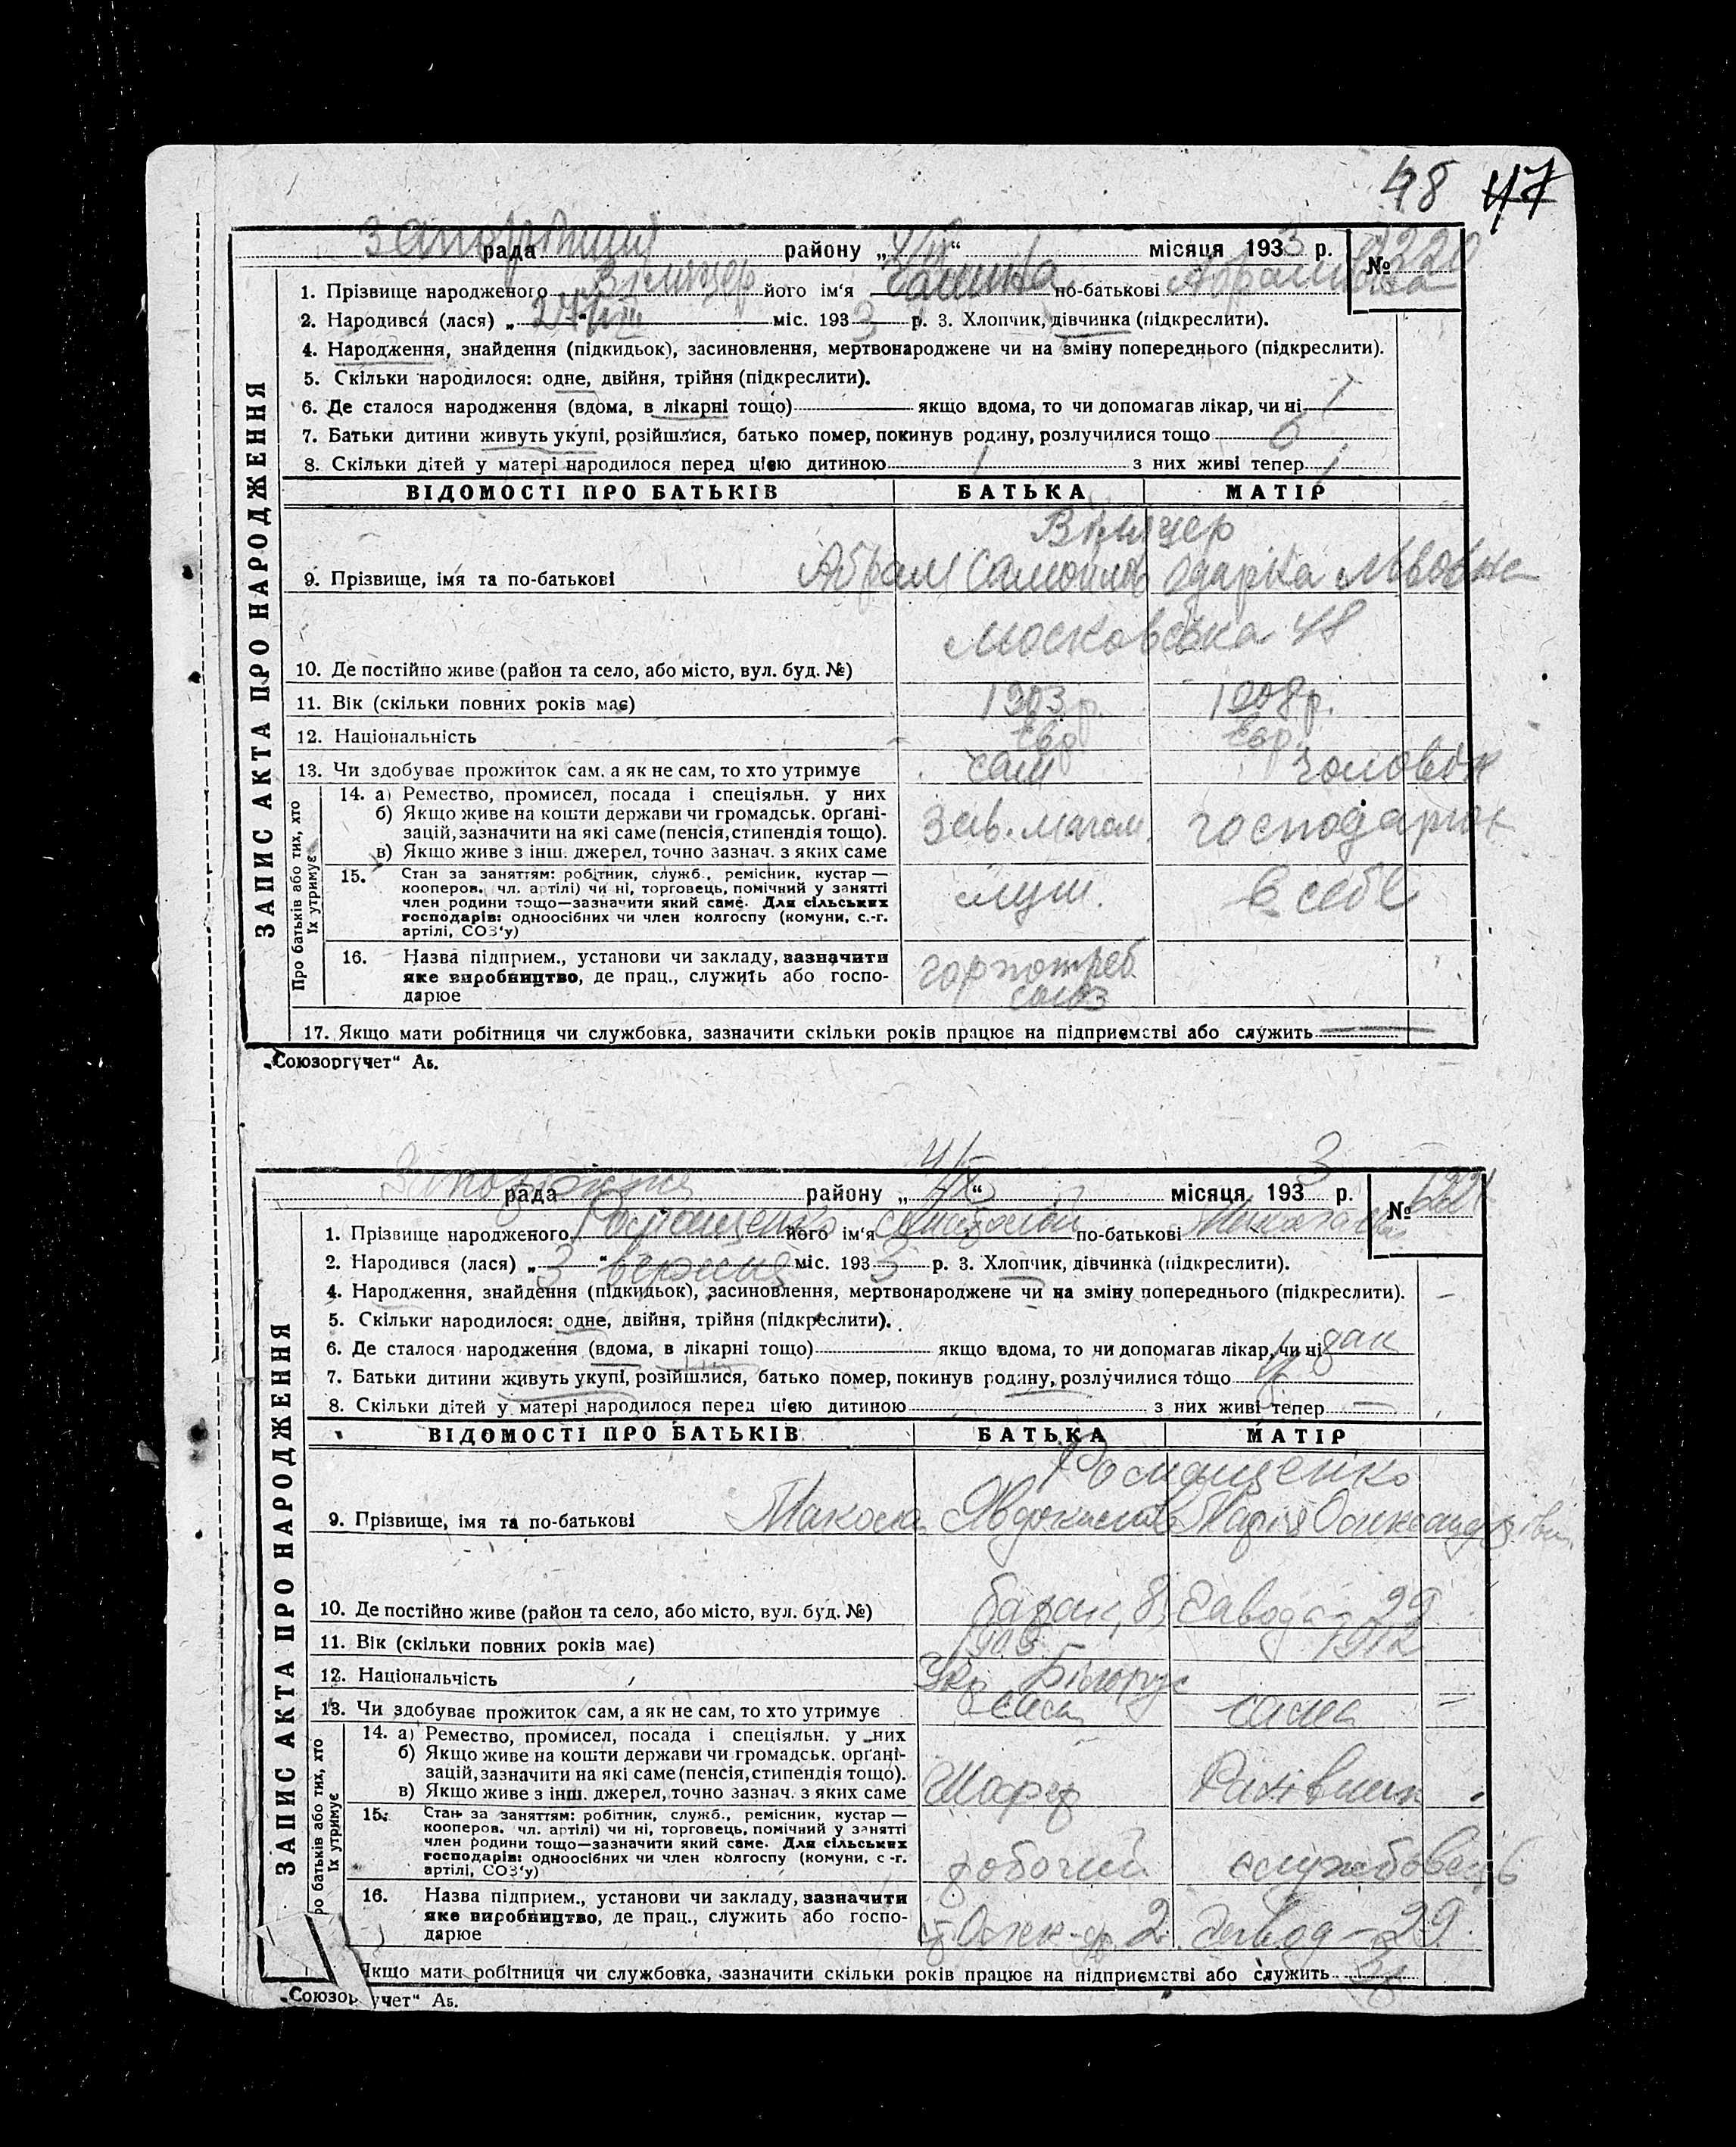 48 47
рада району „4/IX“ місяця 1933 р. № 1220
1. Прізвище народженого його ім'я Галина по-батькові Абрамівна
2. Народився (лася) „ 27/VIII міс. 1933 р. 3. Хлопчик, дівчинка (підкреслити).
4. Народження, знайдення (підкидьок), засиновлення, мертвонароджене чи на зміну попереднього (підкреслити).
5. Скільки народилося: одне, двійня, трійня (підкреслити).
6. Де сталося народження (вдома, в лікарні тощо) якщо вдома, то чи допомагав лікар, чи ні
7. Батьки дитини живуть укупі, розійшлися, батько помер, покинув родину, розлучилися тощо
8. Скільки дітей у матері народилося перед цією дитиною 1 з них живі тепер 1
ЗАПИС АКТА ПРО НАРОДЖЕННЯ
ВІДОМОСТІ ПРО БАТЬКІВ БАТЬКА МАТІР
9. Прізвище, імя та по-батькові Абрам Самойлов Одарка Львовна
Московська 48
10. Де постійно живе (район та село, або місто, вул. буд. №)
11. Вік (скільки повних років має) 1903 р. 1908 р.
12. Національність Євр Євр.
13. Чи здобуває прожиток сам, а як не сам, то хто утримує сам чоловік
Про батьків або тих, хто їх утримує
14. а) Ремество, промисел, посада і спеціяльн. у них
б) Якщо живе на кошти держави чи громадськ. орґані-
зацій, зазначити на які саме (пенсія, стипендія тощо).
в) Якщо живе з інш. джерел, точно зазнач. з яких саме
Зав. магаз. господарює
15. Стан за заняттям: робітник, служб., ремісник, кустар —
кооперов. чл. артілі) чи ні, торговець, помічний у занятті
член родини тощо—зазначити який саме. Для сільських
господарів: одноосібних чи член колгоспу (комуни, с.-г.
артілі, СОЗ'у)
служ. в себе
16. Назва підприєм., установи чи закладу, зазначити
яке виробництво, де прац., служить або госпо-
дарює
горпотреб
союз
17. Якщо мати робітниця чи службовка, зазначити скільки років працює на підприємстві або служить
„Союзоргучет“ А5.
рада району „4/IX“ місяця 1933 р. № 1221
1. Прізвище народженого Ромащенко його ім'я Анатолій по-батькові
2. Народився (лася) „3“ вересня міс. 1933 р. 3. Хлопчик, дівчинка (підкреслити).
4. Народження, знайдення (підкидьок), засиновлення, мертвонароджене чи на зміну попереднього (підкреслити).
5. Скільки народилося: одне, двійня, трійня (підкреслити).
6. Де сталося народження (вдома, в лікарні тощо) якщо вдома, то чи допомагав лікар, чи ні
7. Батьки дитини живуть укупі, розійшлися, батько помер, покинув родину, розлучилися тощо
8. Скільки дітей у матері народилося перед цією дитиною з них живі тепер
ЗАПИС АКТА ПРО НАРОДЖЕННЯ
ВІДОМОСТІ ПРО БАТЬКІВ БАТЬКА МАТІР
Ромащенко
9. Прізвище, імя та по-батькові Микола Марія Олександрівна
10. Де постійно живе (район та село, або місто, вул. буд. №) 8, 29
11. Вік (скільки повних років має) 1912
12. Національність Укр Білорус
13. Чи здобуває прожиток сам, а як не сам, то хто утримує сам сама
14. а) Ремество, промисел, посада і спеціяльн. у них
б) Якщо живе на кошти держави чи громадськ. орґані-
зацій, зазначити на які саме (пенсія, стипендія тощо).
в) Якщо живе з інш. джерел, точно зазнач. з яких саме
Рахівник
15. Стан за заняттям: робітник, служб., ремісник, кустар —
кооперов. чл. артілі) чи ні, торговець, помічний у занятті
член родини тощо—зазначити який саме. Для сільських
господарів: одноосібних чи член колгоспу (комуни, с-г.
артілі, СОЗ'у)
робочий службовець
16. Назва підприєм., установи чи закладу, зазначити
яке виробництво, де прац., служить або госпо-
дарює
2 завод — 29
Якщо мати робітниця чи службовка, зазначити скільки років працює на підприємстві або служить
„Союзоргучет“ А5.